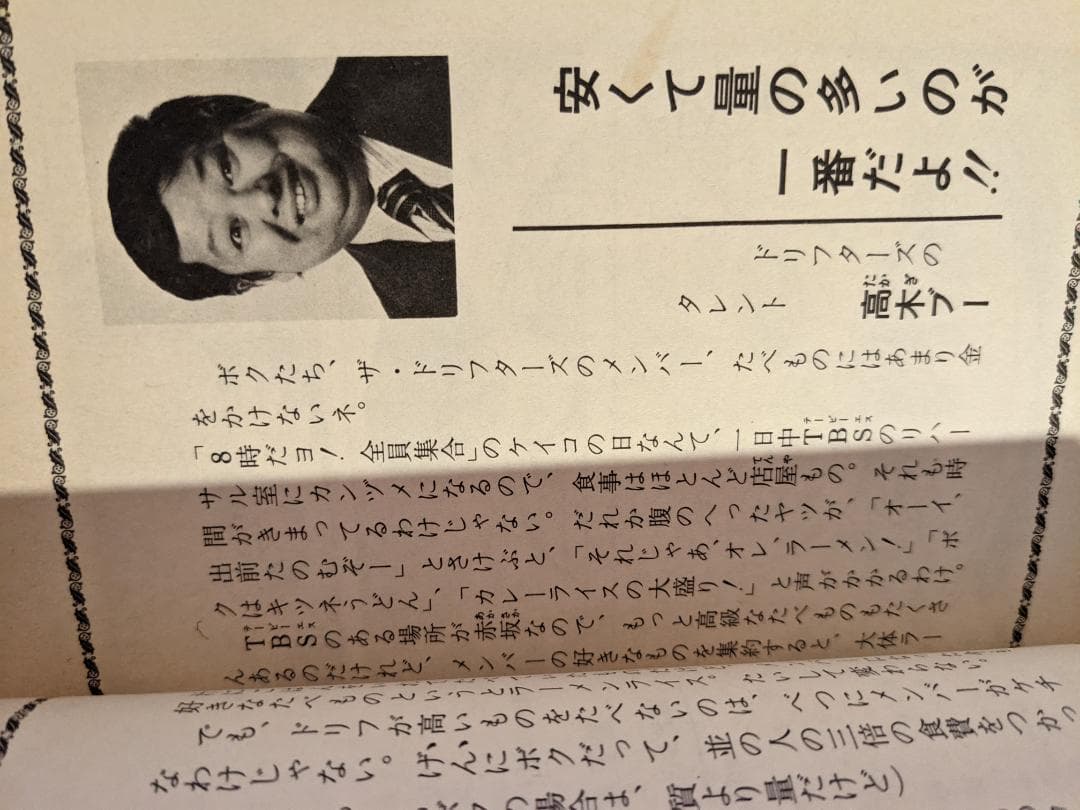 安くて量の多いのが
一番だよ!!
ドリフターズの
タレント
たかぎ
高木ブー
ボクたち、ザ・ドリフターズのメンバー、たべものにはあまり金
をかけないネ。
「8時だヨ! 全員集合」のケイコの日なんて、一日中TBSのリハー
てんや
サル室にカンヅメになるので、食事はほとんど店屋もの。それも時
間がきまってるわけじゃない。だれか腹のへったヤツが、「オーイ、
出前たのむぞー」とさけぶと、「それじゃあ、オレ、ラーメン!」「ボ
クはキツネうどん」、「カレーライスの大盛り!」と声がかかるわけ。
あかさか
TBSのある場所が赤坂なので、もっと高級なたべものもたくさ
んあるのだけれど、メンバーの好きなものを集約すると、大体ラー
好きなたべものというとラーメンライス。たいして変わらない。
でも、ドリフが高いものをたべないのは、べつにメンバーがケチ
なわけじゃない。げんにボクだって、並の人の三倍の食費をつかっ
の場合は、質より量だけど)